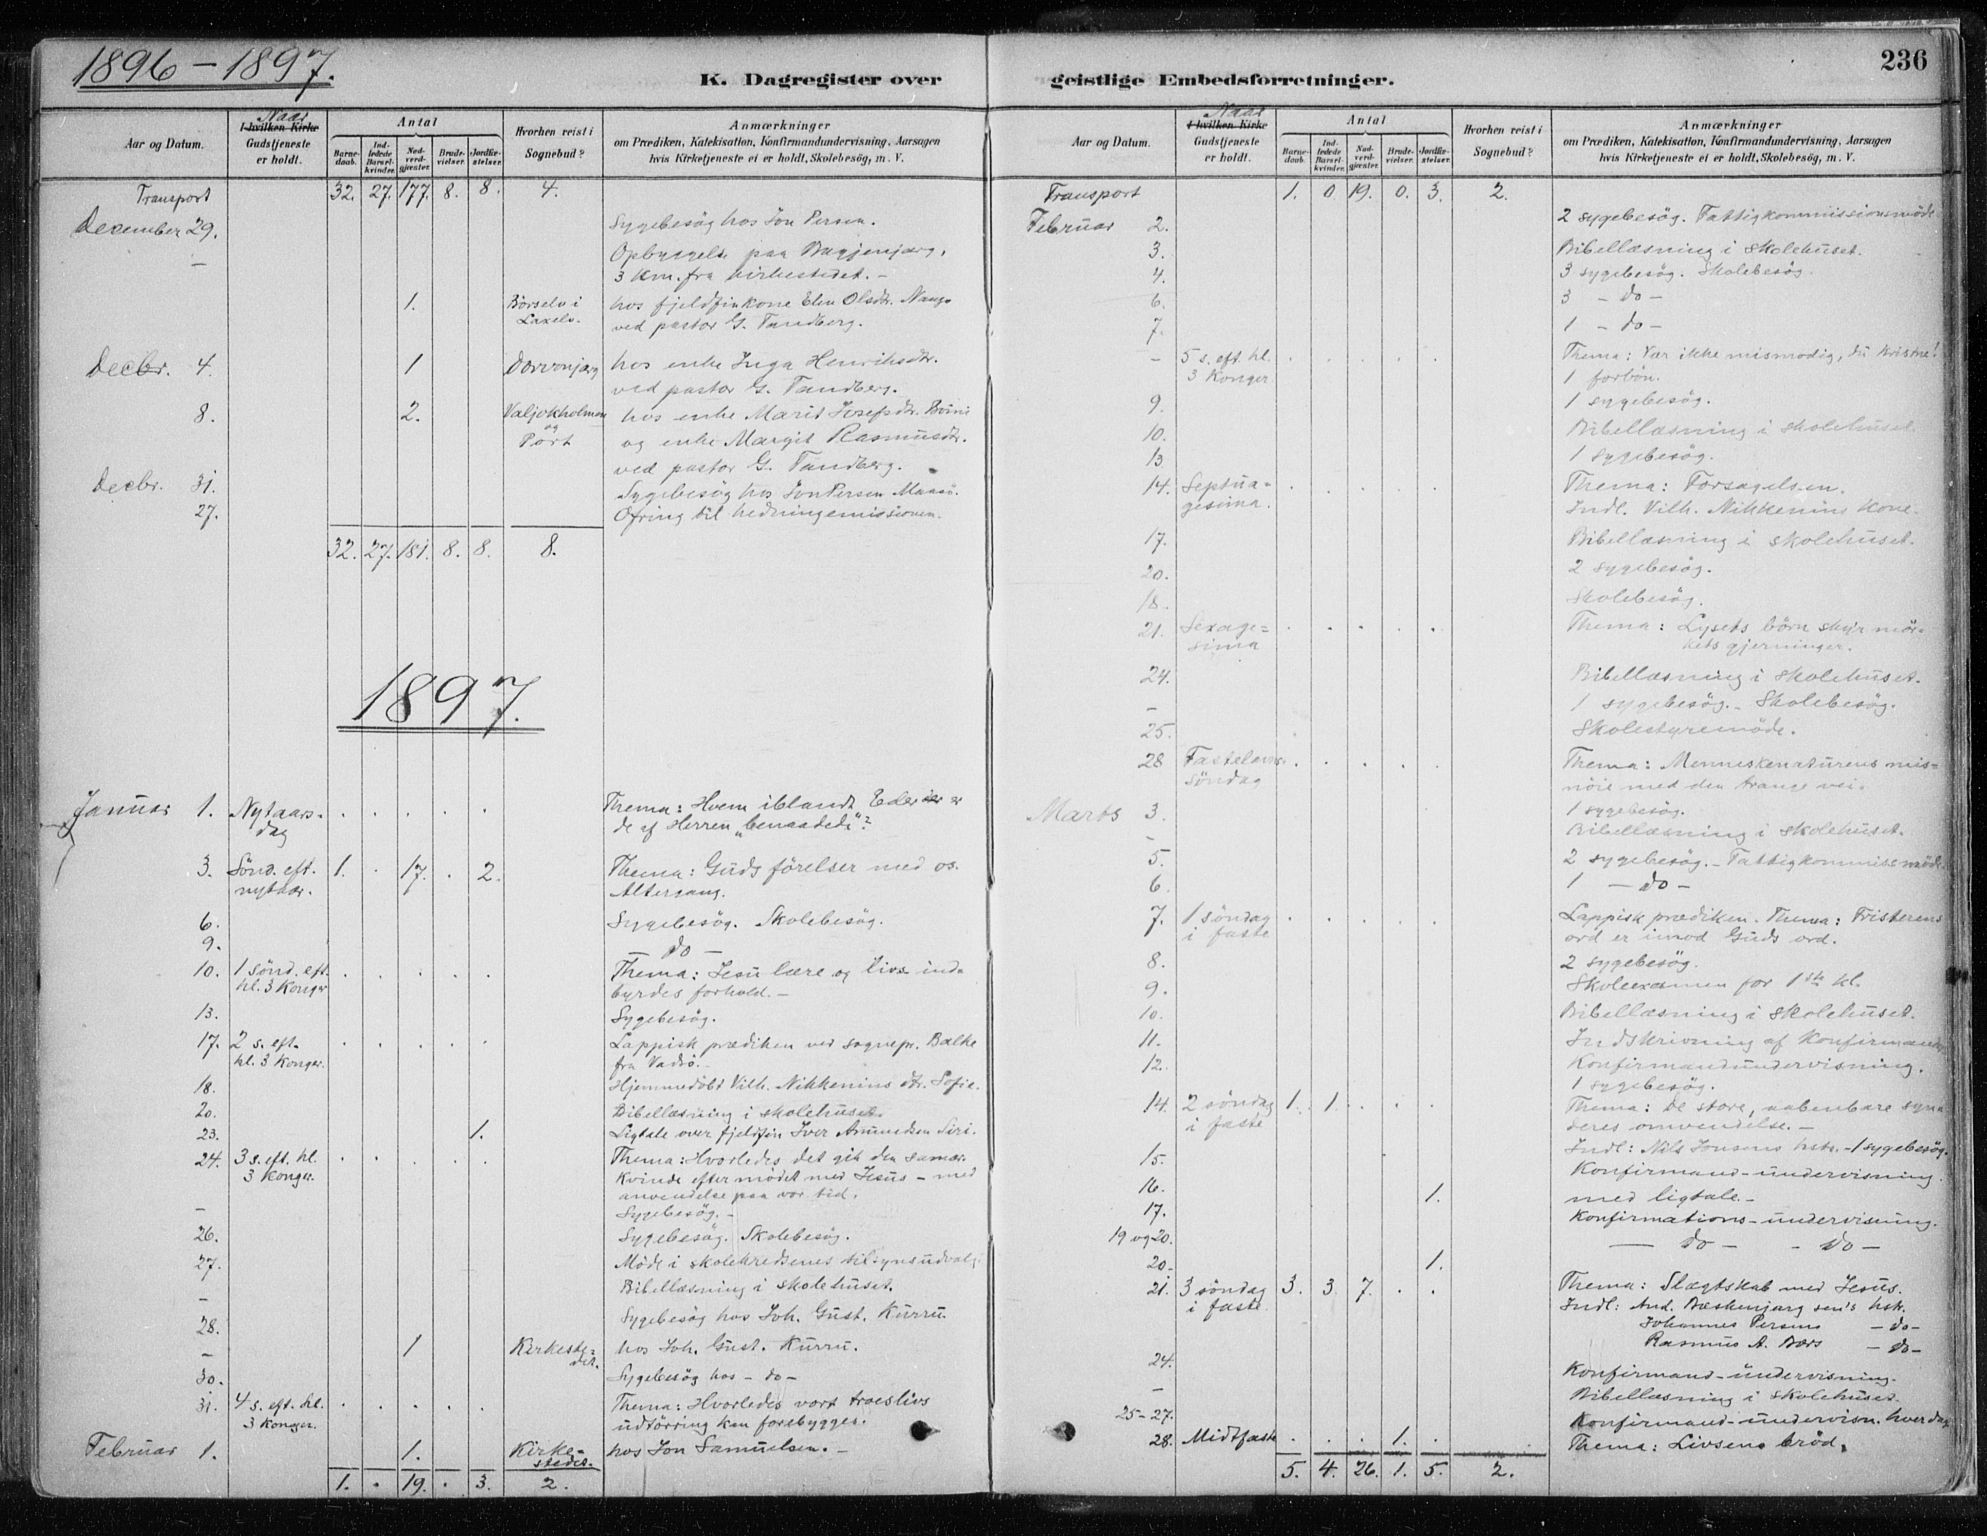 1896-1897.
236
K. Dagregister over geistlige Embedsforretninger.
Aar og Datum.
Naar
I hvilken Kirke
Gudstjeneste
er holdt.
Antal
Barne-
daab.
Ind-
ledede
Barsel-
kvinder.
Nad-
verd-
gjester.
Brude-
vielser.
Jordfæ-
stelser.
Hvorhen reist i
Sognebud?
Anmærkninger
om Prædiken, Katekisation, Konfirmandundervisning, Aarsagen
hvis Kirketjeneste ei er holdt, Skolebesög, m. V.
Transport 32. 27. 177. 8. 8. 4.
December 29. Sygebesög hos Jon Persen.
— Opbyggelse paa
3 Km. fra kirkestedet. -
1. Börselv i hos fjeldfinkone Elen Olsdtr.
Laxelv. ved pastor G. Tandberg.
Decbr. 4. 1 Dorvonjarg hos enke Inga Henriksdtr.
ved pastor G. Tandberg.
8. 2. Valjokholmen hos enke Marit Josefsdtr.
og og enke Margit Rasmusdtr.
Port ved pastor G. Tandberg.
Decbr. 31. Sygebesög hos Jon Persen
27. Ofring til hedningemissionen.
32. 27. 181. 8. 8. 8.
1897.
Januar 1. Nytaars- . . . . . Thema: Hvem iblandt Eder er
dag de af Herren „benaadede"?
3. Sönd. eft. 1. . 17. . 2. Thema: Guds förelser med os.
nytaar. Altergang.
6. Sygebesög. Skolebesög.
9. — do —
10. 1 sönd. eft. . . . . . Thema: Jesu lære og livs ind-
hl. 3 Konger byrdes forhold. -
13. Sygebesög.
17. 2 s. eft. . . . . . Lappisk prædiken ved sognepr. Balke
hl. 3 Konger. fra Vadsö.
18. Hjemmedöbt Vilh. Nikkenins dtr. Sofie.
20. Bibellæsning i skolehuset.
23. 1. Ligtale over fjeldfin Iver Amundsen Siri.
24. 3 s. eft. hl. . . . . . Thema: Hvorledes det gik den samar.
3 Konger. kvinde efter mödet med Jesus - med
anvendelse paa vor tid.
— Sygebesög. -
26. Sygebesög. Skolebesög.
27. Möde i skolekredsens tilsynsudvalg.
— Bibellæsning i skolehuset.
28. Sygebesög hos Joh. Gust. Kurru.
— 1 Kirkeste- hos Joh. Gust. Kurru.
det.
30. Sygebesög hos - do -
31. 4 s. eft. hl. . . . . . Thema: Hvorledes vort troesliv
3 Konger. udtörring kan forebygges.
Februar 1. 1. Kirke- hos Jon Samuelsen. -
stedet.
1. . 19. . 3. 2.
Aar og Datum.
Naar
I hvilken Kirke
Gudstjeneste
er holdt.
Antal
Barne-
daab.
Ind-
ledede
Barsel-
kvinder.
Nad-
verd-
gjester.
Brude-
vielser.
Jordfæ-
stelser.
Hvorhen reist i
Sognebud?
Anmærkninger
om Prædiken, Katekisation, Konfirmandundervisning, Aarsagen
hvis Kirketjeneste ei er holdt, Skolebesög, m. V.
Transport 1. 0 19. 0. 3. 2.
Februar 2. 2 sygebesög. Fattigkommissionsmöde
3. Bibellæsning i skolehuset.
4. 3 sygebesög. Skolebesög.
6. 3 - do -
7. 1 - do -
— 5 s. eft. hl. . . . . . Thema: Vær ikke mismodig, du kristne!
3 Konger. 1 forbön.
9. 1 sygebesög.
10. Bibellæsning i skolehuset.
13. 1 sygebesög.
14. Septua- . . . . . Thema: Forsagelsen.
gesima. Indl. Vilh. Nikkenins kone.
17. Bibellæsning i skolehuset.
20. 2 sygebesög.
18. Skolebesög.
21. Sexage- . . . . . Thema: Lysets börn skyr mör-
sima kets gjerninger.
24. Bibellæsning i skolehuset.
— 1 sygebesög. - Skolebesög.
25. Skolestyremöde.
28 Fastelavns- . . . . . Thema: Menneskenaturens mis-
söndag nöie med den trange vei.
Marts 3. 1 sygebesög.
— Bibellæsning i skolehuset.
5. 2 sygebesög. - Fattigkommiss.möde.
6. 1 — do —
7. 1 söndag . . . . . Lappisk prædiken. Thema: Fristerens
i faste ord er imod Guds ord.
8. 2 sygebesög.
9. Skoleexamen for 1ste kl.
10. Bibellæsning i skolehuset.
11. Indskrivning af Konfirmander
12. Konfirmandundervisning.
1 sygebesög.
14. 2 söndag 1. 1. . . . Thema: De store, aabenbare syn-
i faste deres omvendelse. -
Indl: Nils Jonsens hstr. - 1 sygebesög.
15. Konfirmand-undervisning.
16. 1. med ligtale. -
17. Konfirmations-undervisning.
19 og 20. — do — - do —
20. 1.
21. 3 söndag 3. 3. 7. . . Thema: Slægtskab med Jesus.
i faste. Indl: And. Bæskenjarg sen's hstr.
Johannes Persens - do -
Rasmus A. Børs - do -
24. Konfirmand-undervisning.
— Bibellæsning i skolehuset.
25-27. Konfirmand-undervisn. hver dag
28. Midtfaste . . . 1. . Thema: Livsens bröd.
5. 4. 26. 1. 5. 2.